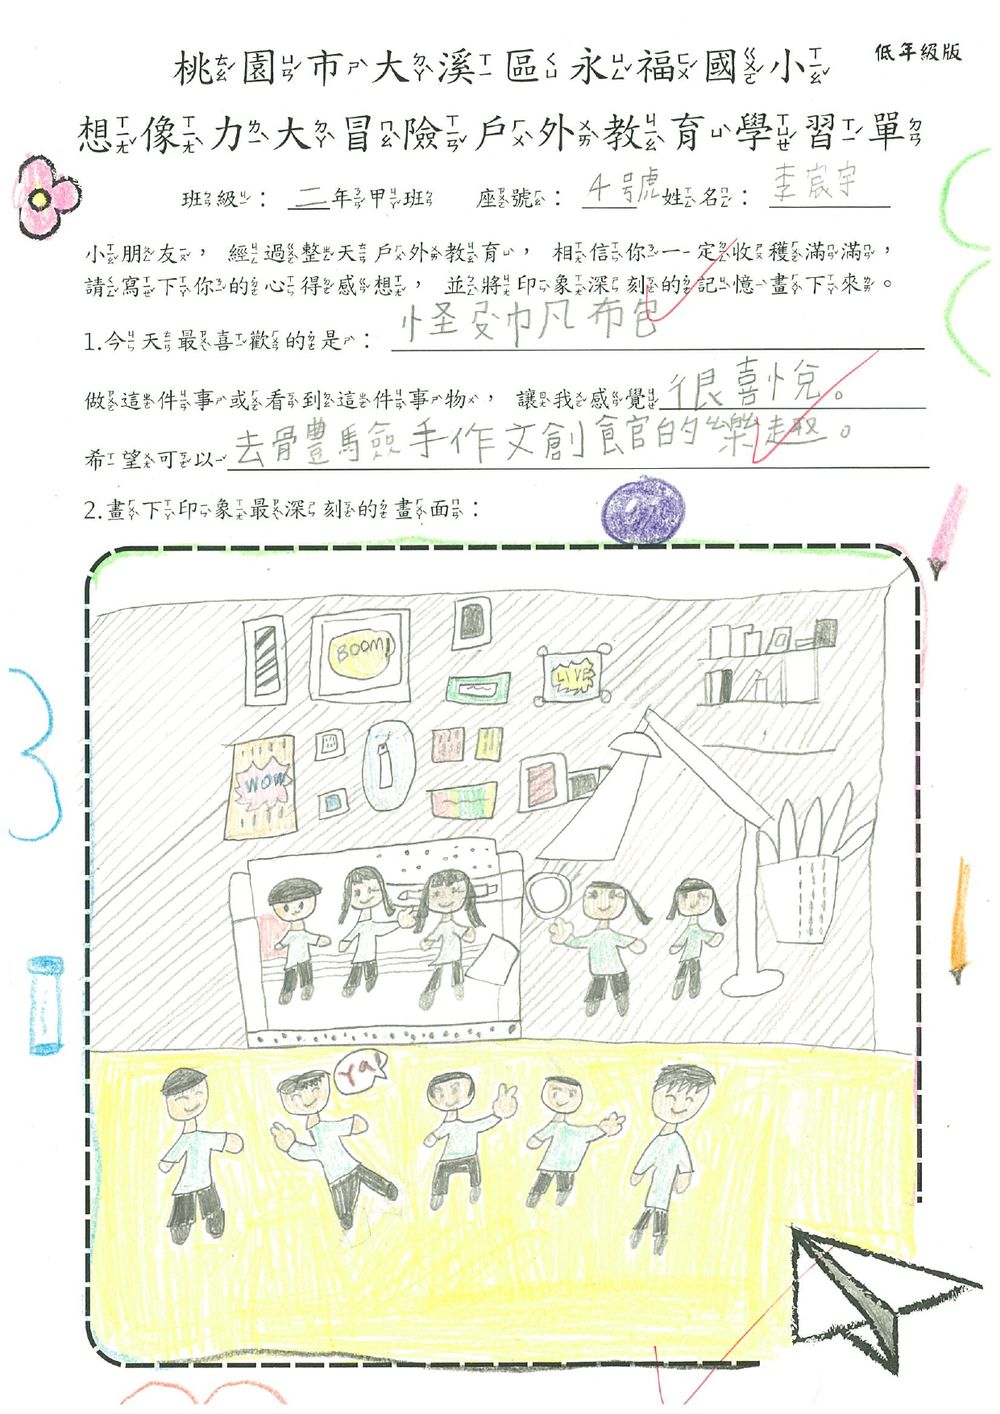 低年級版
桃園市大溪區永福國小
想像力大冒險戶外教育學習單
班級：二年甲班 座號：4號 姓名：李宸宇
小朋友，經過整天戶外教育，相信你一定收穫滿滿，
請寫下你的心得感想，並將印象深刻的記憶畫下來。
1.今天最喜歡的是：怪受巾凡布包
做這件事或看到這件事物，讓我感覺很喜悅。
希望可以去體驗手作文創館的樂趣。
2.畫下印象最深刻的畫面：
BOOM!
LIVE
WOW
Ya!